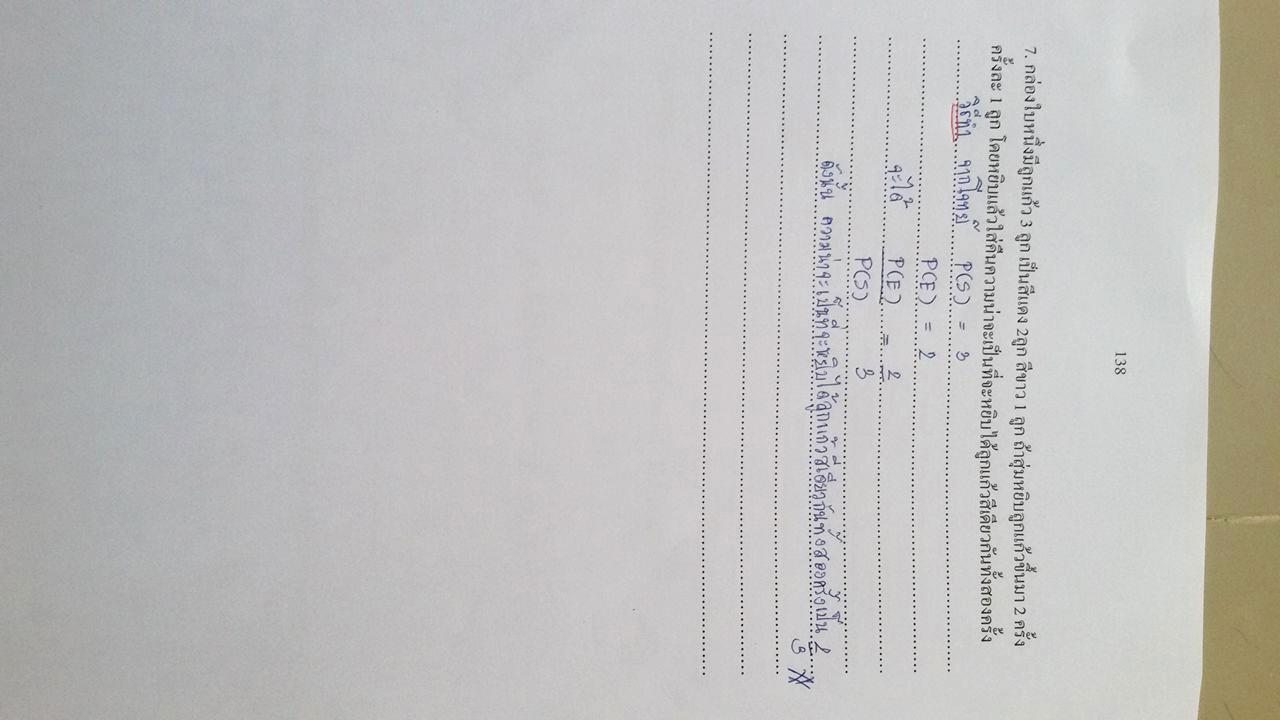 138
7. กล่องใบหนึ่งมีลูกแก้ว 3 ลูก เป็นสีแดง 2ลูก สีขาว 1 ลูก ถ้าสุ่มหยิบลูกแก้วขึ้นมา 2 ครั้ง
ครั้งละ 1 ลูก โดยหยิบแล้วใส่คืนความน่าจะเป็นที่จะหยิบได้ลูกแก้วสีเดียวกันทั้งสองครั้ง
วิธีทำ จากโจทย์ P(S) = 3
P(E) = 2
จะได้ P(E) = 2
P(S) 3
ดังนั้น ความน่าจะเป็นที่จะหยิบได้ลูกแก้วสีเดียวกันทั้งสองครั้งเป็น 2
3